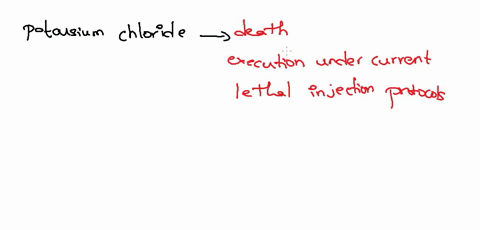 potassium chloride → death
execution under current
lethal injection protocols